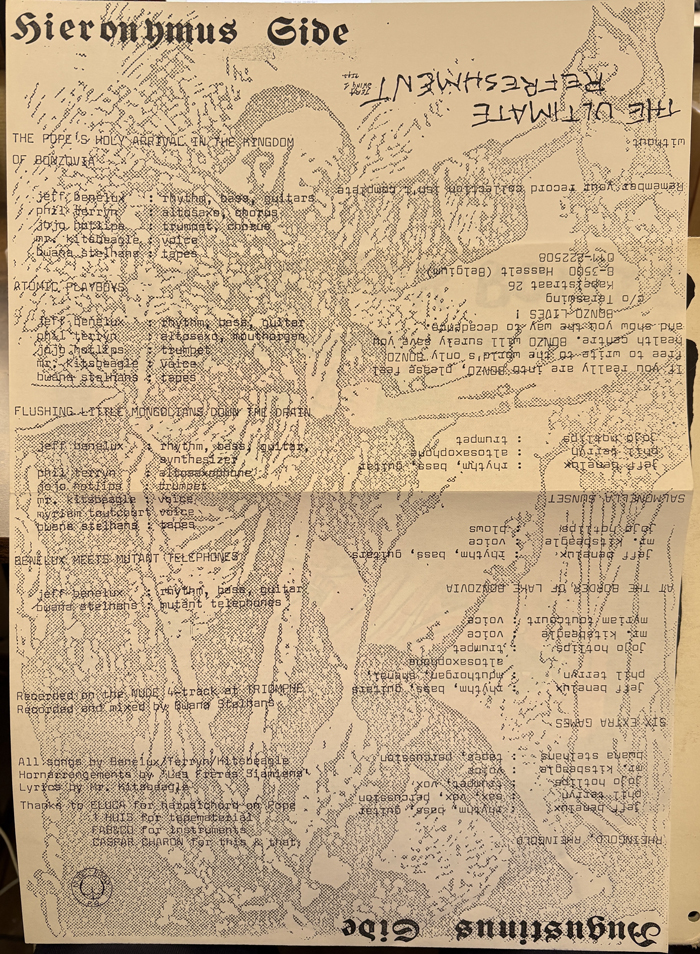 Hieronymus Side
THE POPE'S HOLY ARRIVAL IN THE KINGDOM
OF BONZOVIA
jeff benelux : rhythm, bass, guitars
phil terryn : altosaxo, chorus
jojo hotlips : trumpet, chorus
mr. kitsbeagle : voice
bwana stelhans : tapes
ATOMIC PLAYBOYS
jeff benelux : rhythm, bass, guitar
phil terryn : altosaxo, mouthorgan
jojo hotlips : trumpet
mr. kitsbeagle : voice
bwana stelhans : tapes
FLUSHING LITTLE MONGOLIANS DOWN THE DRAIN
jeff benelux : rhythm, bass, guitar,
synthesizer
phil terryn : altosaxophone
jojo hotlips : trumpet
mr. kitsbeagle : voice
myriam toutcourt voice
bwana stelhans : tapes
BENELUX MEETS MUTANT TELEPHONES
jeff benelux : rhythm, bass, guitar
bwana stelhans : mutant telephones
Recorded on the NUDE 4-track at TRIOMPHE
Recorded and mixed by Bwana Stelhans
All songs by Benelux/Terryn/Kitsbeagle
Hornarrengements by "Les Frères Siamiens"
Lyrics by Mr. Kitsbeagle
Thanks to ELUCA for harpsichord on Pope
T HUIS for tapematerial
FAB&CO for instruments
CASPAR CHARON for this & that
Augustinus Side
RHEINGOLD, RHEINGOLD
jeff benelux : rhythm, bass, guitar
phil terryn : sax, vox, percussion
jojo hotlips : trumpet, vox
mr. kitsbeagle : voice
bwana stelhans : tapes, percussion
SIX EXTRA GAMES
jeff benelux : rhythm, bass, guitars
phil terryn : mouthorgan, shenai,
altosaxophone
jojo hotlips : trumpet
mr. kitsbeagle : voice
myriam toutcourt : voice
AT THE BORDER OF LAKE BONZOVIA
jeff benelux : rhythm, bass, guitars
mr. kitsbeagle : voice
jojo hotlips : blows
SALMONELLA SUNSET
jeff benelux : rhythm, bass, guitar
phil terryn : altosaxophone
jojo hotlips : trumpet
If you really are into BONZO, please feel
free to write to the world's only BONZO
health centre. BONZO will surely save you
and show you the way to decadence.
BONZO LIVES !
c/o
Kapelstraat 26
B-3500 Hasselt (Belgium)
011-225508
Remember your record collection isn't complete
without:
THE ULTIMATE
REFRESHMENT